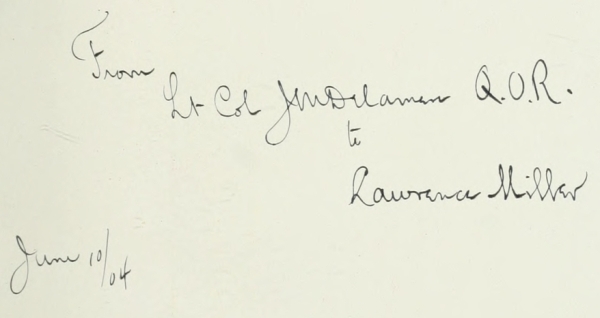 From
Lt Col J M Delamere Q.O.R.
to
Lawrence Miller
June 10/04